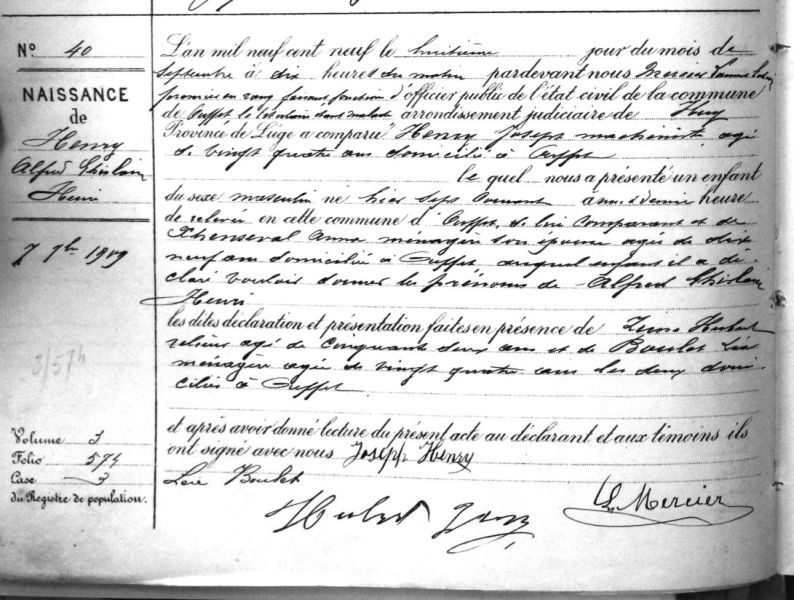 N° 40
NAISSANCE
de
Henry
Alfred Ghislain
Henri
7 7bre 1909
3/574
Volume 3
Folio 574
Case 3
du Registre de population.
L'an mil neuf cent neuf le huitième jour du mois de
Septembre à dix heures du matin pardevant nous Mercier
d'officier public de l'état civil de la commune
de Ouffet, arrondissement judiciaire de Huy
Province de Liège a comparu Henry Joseph machiniste, agé
de vingt quatre ans domicilié à Ouffet
le quel nous a présenté un enfant
du sexe masculin né hier sept courant à heure
de relevée en cette commune d'Ouffet, de lui comparant et de
Thenseval Anna ménagère son épouse agée de dix
neuf ans domiciliée à Ouffet, auquel enfant il a dé-
claré vouloir donner les prénoms de Alfred Ghislain
Henri
les dites déclaration et présentation faites en présence de Hubert
agé de cinquante deux ans et de Boulet Lia
ménagère agée de vingt quatre ans les deux domi-
ciliés à Ouffet
et après avoir donné lecture du présent acte au déclarant et aux témoins ils
ont signé avec nous Joseph Henry
Boulet
Hubert
L. Mercier